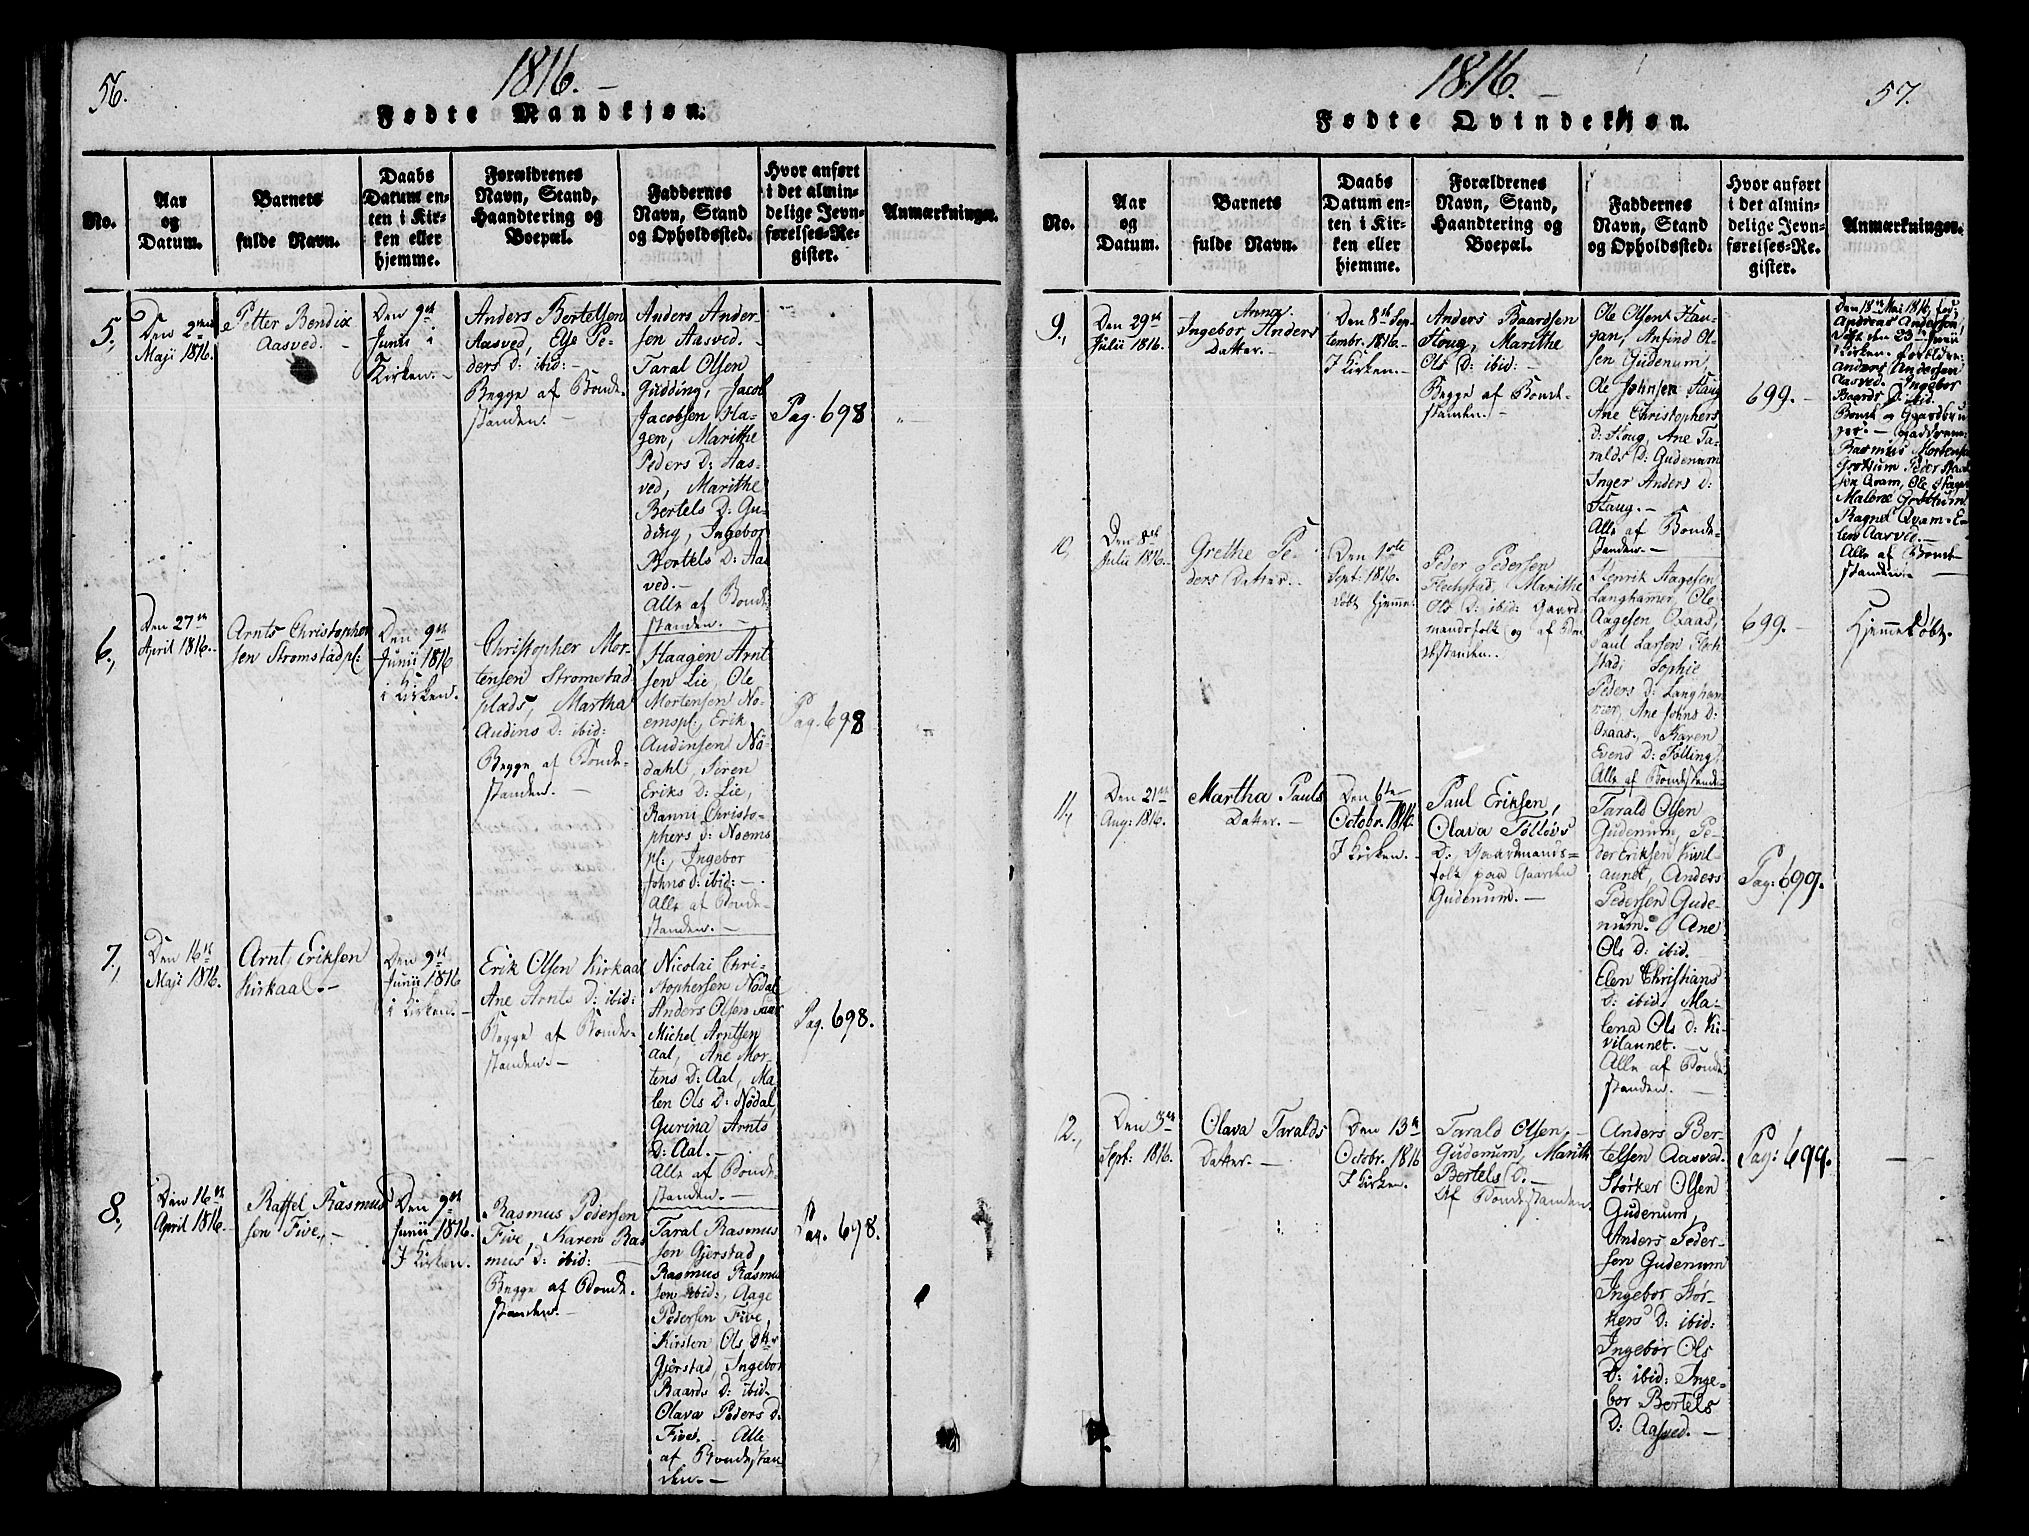 56.
1816. —
Fødte Mandkjøn.
No.
Aar
og
Datum.
Barnets
fulde Navn.
Daabs
Datum en-
ten i Kir-
ken eller
hjemme.
Forældrenes
Navn, Stand,
Haandtering og
Boepæl.
Faddernes
Navn, Stand
og Opholdssted.
Hvor anført
i det almin-
delige Jevn-
førelses-Re-
gister.
Anmærkninger.
5.,
Den 2den
Maji 1816.
Petter Bendix
Aasved. —
Den 9de
Junii i
Kirken. —
Anders Bertelsen
Aasved, Else Pe-
ders D: ibid: —
Begge af Bonde-
standen. —
Anders Ander-
sen Aasved. —
Taral Olsen
Gudding, Jacob
Jacobsen Ha-
gen, Marithe
Peders D: Aas-
ved, Marithe
Bertels D: Gu-
ding, Ingebor
Bertels D: Aas
ved. —
Alle af Bonde-
standen. —
Pag. 698
6.,
Den 27de
April 1816. —
Arnts Christopher
sen Stromstadpl:
Den 9de
Junii 1816
i Kirken. —
Christopher Mor-
tensen Stromstad
plads, Martha
Audins D: ibid:
Begge af Bonde-
standen. —
Haagen Arnt
sen Lie, Ole
Mortensen No-
emspl:, Erik
Audinsen Nö-
dahl, Siren
Eriks D: Lie,
Ranni Christo-
phers D: Noems
pl:, Ingebor
Johns D: ibid: —
Alle af Bonde-
standen. —
Pag. 698
7.,
Den 16de
Maji 1816.
Arnt Eriksen
Kirkaal. —
Den 9de
Junii 1816
i Kirken. —
Erik Olsen Kirkaal
Ane Arnts D: ibid:
Begge af Bonde-
standen. —
Nicolai Chri-
stophersen Nödal
Anders Olsen Saur
Michel Arntsen
Aal, Ane Mor-
tens D: Aal, Ma-
len Ols D: Nödal,
Gurina Arnts
D: Aal. —
Alle af Bonde-
standen. —
Pag. 698.
8.,
Den 16de
April 1816. —
Raffel Rasmus
sen Five. —
Den 9de
Junii 1816.
I Kirken. —
Rasmus Pedersen
Five, Karen Ras
mus D: ibid: —
Begge af Bonde-
standen. —
Taral Rasmus
sen Gjerstad,
Rasmus Rasmus
sen ibid:, Aage
Pedersen Five,
Kirsten Ols Dtr
Gjerstad, Ingebor
Baards D: ibid.
Olava Peders D:
Five. — Alle
af Bondestan
den. —
Pag. 698.
1816. —
57.
Fødte Qvindekjøn.
No.
Aar
og
Datum.
Barnets
fulde Navn.
Daabs
Datum en-
ten i Kir-
ken eller
hjemme.
Forældrenes
Navn, Stand,
Haandtering og
Boepæl.
Faddernes
Navn, Stand
og Opholdssted.
Hvor anført
i det almin-
delige Jevn-
førelses-Re-
gister.
Anmærkninger.
9.,
Den 29de
Julii 1816. —
Anna
Ingebor Anders
Datter. —
Den 8de Sep-
tembr. 1816. —
I Kirken. —
Anders Baardsen
Houg, Marithe
Ols D: ibid: —
Begge af Bonde-
standen. —
Ole Olsen Hau-
gan, Anfind Ol-
sen Gudenum,
Ole Johnsen Haug
Ane Christophers
D: Houg, Ane Ta-
ralds D: Gudenum
Inger Anders D:
Haug. —
Alle af Bonde-
standen. —
699. —
Den 18de Mai 1816,
Andreas Andersen,
Døbt den 23de Junii
Kirken. Forældre:
Anders Andersen
Aasved. Ingebor
Baards D: ibid.
Bonde og Gaardbru
ger. — Fadderne:
Rasmus Mortensen
Grotum Peder
sen Qvam, Ole
Malene Grotum
Ragnel Qvam. E-
len Aasved. —
Alle af Bonde-
standen. —
10,
Den 8de
Julii 1816. —
Grethe Pe-
ders Datter. —
Den 1ste
Sept: 1816.
Døbt Hjemme.
Peder Pedersen
Flechstad, Marithe
Ols D: ibid: Gaard
mandsfolk og af Bon
destanden. —
Henrik Aagesen
Langhamer, Ole
Aagesen Oxaas,
Paul Larsen Flech
stad, Sophie
Peders D: Langham
mer, Ane Johns D:
Oxaas, Karen
Evens D: Tölling,
Alle af Bondestande-
699. —
Hjemmedøbt.
11.,
Den 21de
Aug: 1816.
Martha Pauls
Datter. —
Den 6te
Octobr. 1816.
I Kirken. —
Paul Eriksen,
Olava Töllövs
D: Gaardmands-
folk paa Gaarden
Gudenum. —
Tarald Olsen
Gudenum, Pe-
der Eriksen Kivil-
aunet, Anders
Pedersen Gude-
num. Ane
Ols D: ibid.
Elen Christians
D: ibid: Ma-
lena Ols D: Ki-
vilaunet. —
Alle af Bonde-
standen. —
Pag: 699.
12.,
Den 3de
Sept: 1816.
Olava Taralds
Datter. —
Den 13de
Octobr. 1816
I Kirken.
Tarald Olsen, —
Gudenum, Marith
Bertels D. —
Af Bondestanden.
Anders Ber-
telsen Aasved.
Størker Olsen
Gudenum,
Anders Peder-
sen Gudenum
Ingebor Stör-
kers D: ibid:
Ingebor Ols
D: ibid: Inge-
bor Bertels
D: Aasved. —
Pag: 699.